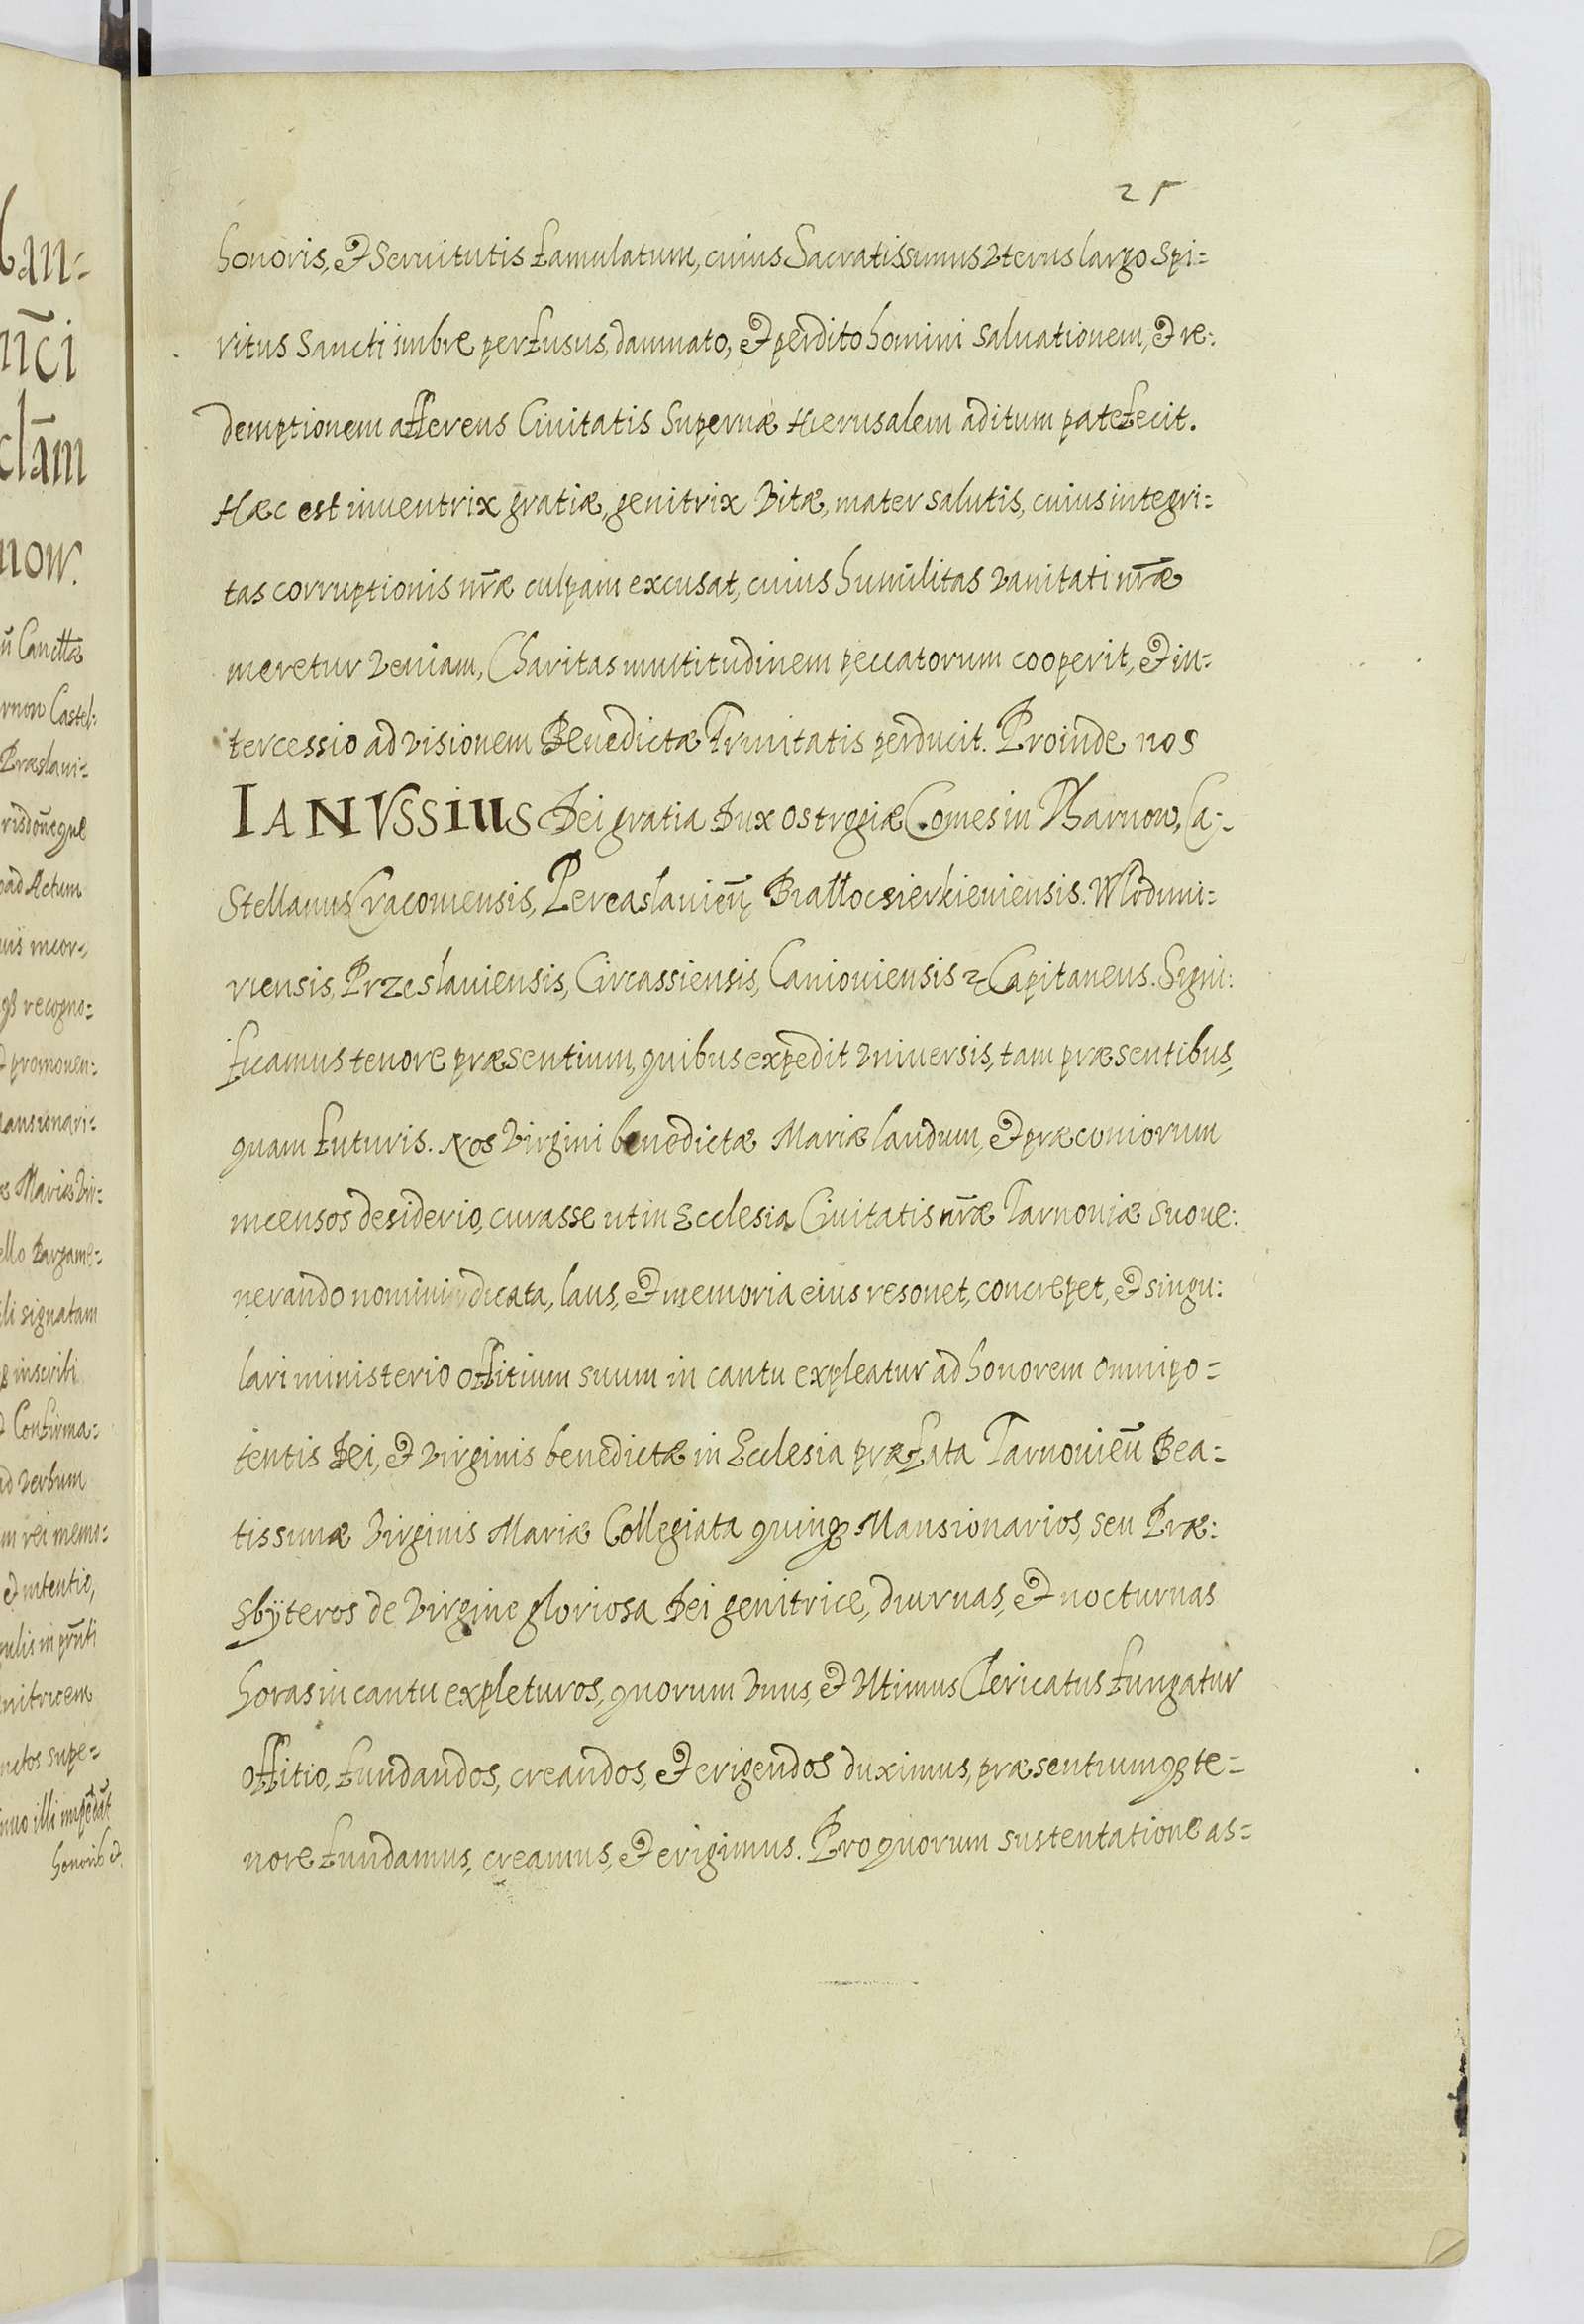 25
honoris, & Seruitutis famulatum, cuius Sacratissimus vterus largo Spi=
ritus Sancti imbre perfusus, damnato, & perdito homini saluationem, & re:
demptionem afferens Ciuitatis Supernæ Hierusalem aditum patefecit.
Hæc est inuentrix gratiæ, genitrix vitæ, mater salutis, cuius integri=
tas corruptionis nr̄æ culpam excusat, cuius humilitas vanitati nr̄æ
meretur veniam, Charitas multitudinem peccatorum cooperit, & in=
tercessio ad visionem Benedictæ Trinitatis perducit. Proinde nos
IANVSSIUS Dei gratia Dux Ostrogiæ Comes in Tharnow, Ca=
Stellanus Cracouiensis, Pereaslauien̄ Białłocsierkieuiensis. Wlodimi=
riensis, Przeslauiensis, Circassiensis, Caniouiensis &c Capitaneus. Signi:
ficamus tenore præsentium, quibus expedit vniuersis, tam præsentibus,
quam futuris. Nos Virgini benedictæ Mariæ laudum, & præconiorum
incensos desiderio, curasse ut in Ecclesia Ciuitatis nr̄æ Tarnouiæ suo ue:
nerando nomini dicata, laus, & memoria eius resonet, concrepet, & singu:
lari ministerio offitium suum in cantu expleatur ad honorem omnipo=
tentis Dei, & Virginis benedictæ in Ecclesia præfata Tarnouien̄ Bea=
tissimæ Virginis Mariæ Collegiata quinqꝫ Mansionarios, seu Præ:
sbÿteros de Virgine gloriosa Dei genitrice, diurnas, & nocturnas
horas in cantu expleturos, quorum vnus, & vltimus Clericatus fungatur
offitio, fundandos, creandos, & erigendos duximus, præsentiumqꝫ te=
nore fundamus, creamus, & erigimus. Pro quorum sustentatione as=